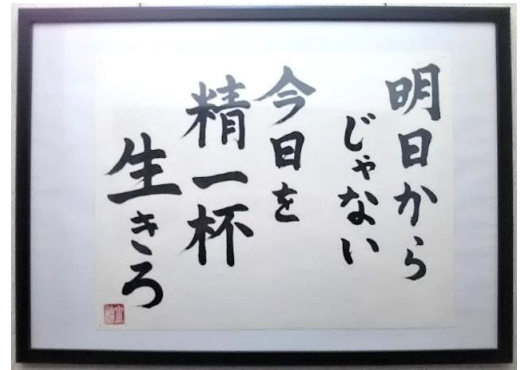 明日から
じゃない
今日を
精一杯
生きろ